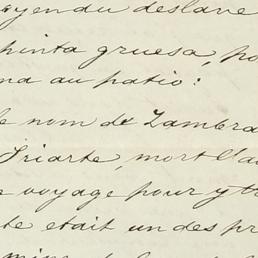 oyen du deslave
pinta gruesa, po
na au patio:
le nom de Zambra
Iriarte, mort l'a
e voyage pour y tr
te etait un des pr